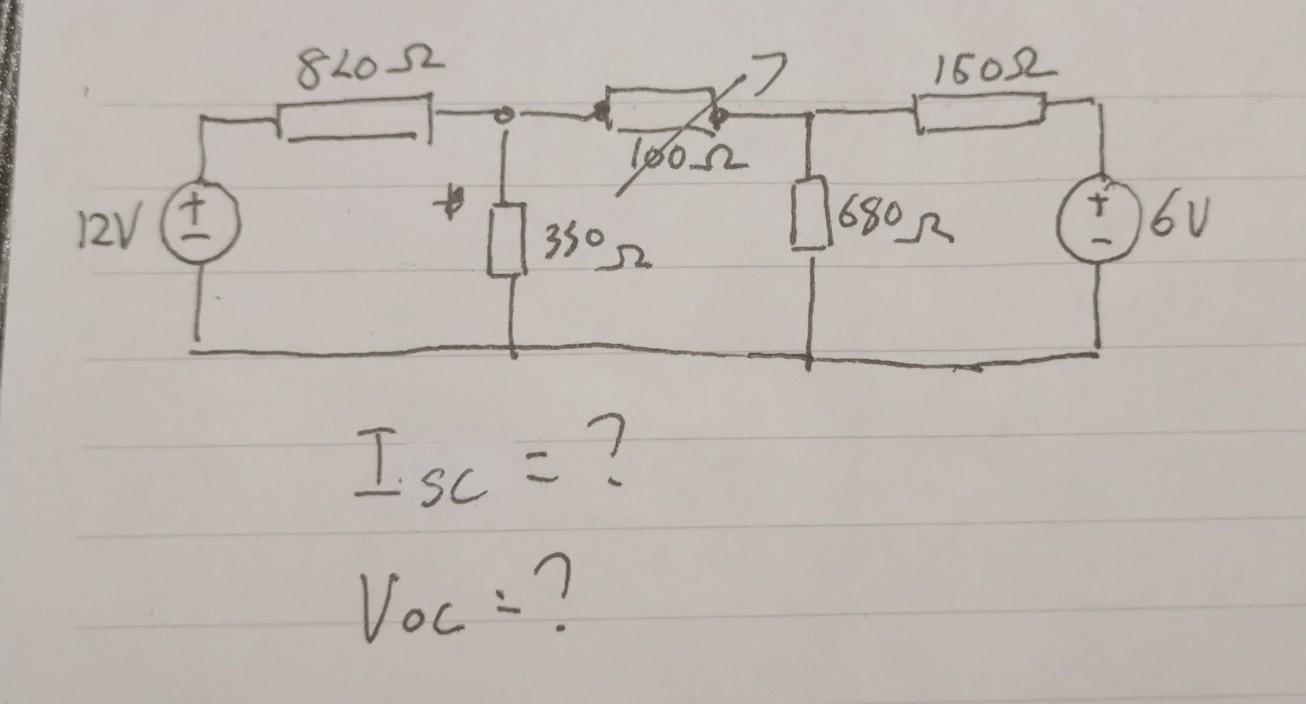 820Ω
150Ω
100Ω
12V
+
-
330Ω
680Ω
+
-
6V
Isc = ?
Voc = ?